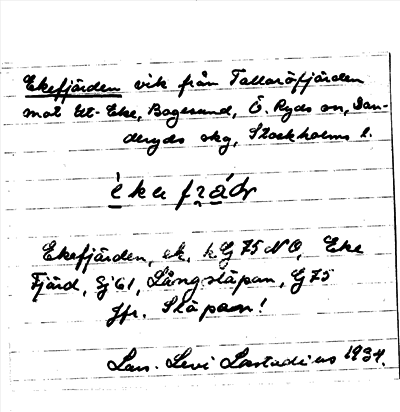 Ekefjärden vik från Tallaröfjärden
mot Ett- Eke, Bogesund, Ö. Ryds sn, Dan-
deryds skg, Stockholms l.
Ekefjärden, ek. k G 75 NO, Eke
Fjärd, Sj 61, Långstäpan, G 75
Jfr. Stäpan!
Lars Levi Læstadius 1934.